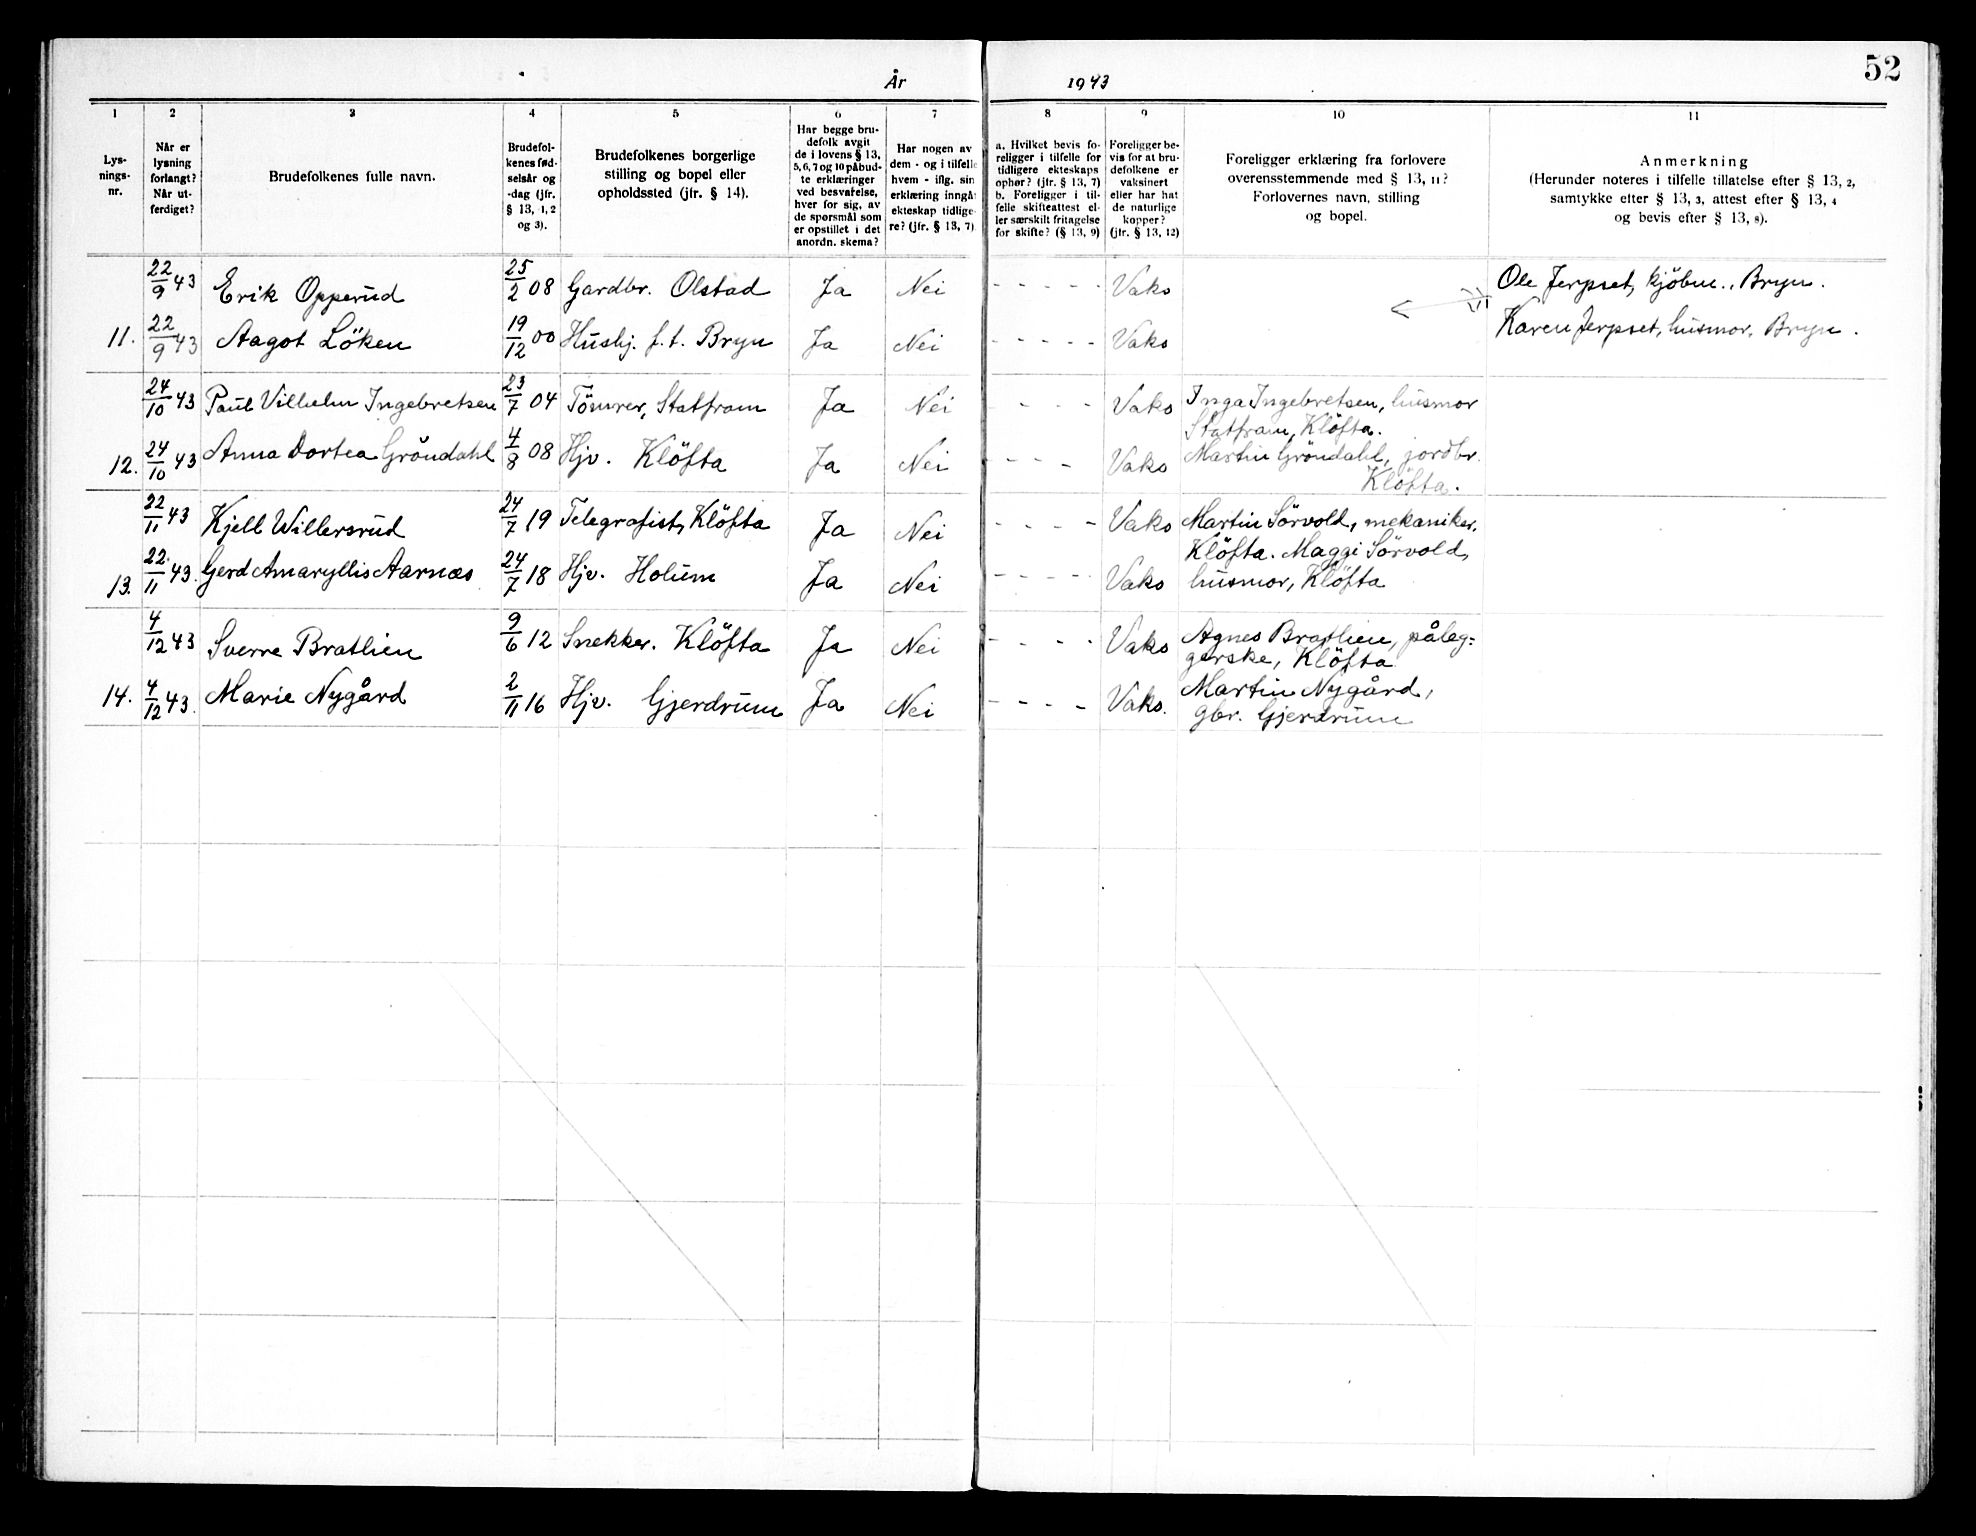 52
År 1943
1 2 3 4 5 6 7 8 9 10 11
Lys-
nings-
nr.
Når er
lysning
forlangt?
Når ut-
ferdiget?
Brudefolkenes fulle navn.
Brudefol-
kenes fød-
selsår og
-dag (jfr.
§ 13, 1, 2
og 3).
Brudefolkenes borgerlige
stilling og bopel eller
opholdssted (jfr. § 14).
Har begge bru-
defolk avgit
de i lovens § 13,
5, 6, 7 og 10 påbud-
te erklæringer
ved besvarelse,
hver for sig, av
de spørsmål som
er opstillet i det
anordn. skema?
Har nogen av
dem - og i tilfelle
hvem - iflg. sin
erklæring inngå
ekteskap tidlige-
re? (jfr. § 13, 7)
a. Hvilket bevis fo-
religger i tilfelle for
tidligere ekteskaps
ophør? (jfr. § 13, 7)
b. Foreligger i til-
felle skifteattest el-
ler særskilt fritagelse
for skifte? (§ 13, 9)
Foreligger be-
vis for at bru-
defolkene er
vaksinert
eller har hat
de naturlige
kopper?
(jfr. § 13, 12)
Foreligger erklæring fra forlovere
overensstemmende med § 13, 11?
Forlovernes navn, stilling
og bopel.
Anmerkning
(Herunder noteres i tilfelle tillatelse efter § 13, 2,
samtykke efter § 13, 3, attest efter § 13, 4
og bevis efter § 13, 8).
22/9 43 Erik Opperud 25/2 08 Gardbr. Olstad Ja Nei - - - - - Vaks Ole Jerpset, kjøbm., Bryn.
11. 22/9 43 Aagot Löken 19/12 00 Hushj. f.t. Bryn Ja Nei - - - - - Vaks Karen Jerpset, husmor, Bryn.
24/10 43 Paul Vilhelm Ingebretsen 23/7 04 Tömrer, Statfram Ja Nei - - - - Vaks Inga Ingebretsen, husmor
Statfram, Klöfta.
12. 24/10 43 Anna Dortea Gröndahl 4/8 08 Hjv. Klöfta Ja Nei - - - Vaks Martin Gröndahl, jordbr.
Klöfta.
22/11 43 Kjell Willersrud 24/7 19 Telegrafist, Klöfta Ja Nei - - - - Vaks Martin Sörvold, mekaniker,
Klöfta. Maggi Sörvold,
13. 22/11 43. Gerd Amaryllis Aarnæs 24/7 18 Hjv. Holum Ja Nei - - - - - Vaks husmor, Klöfta
4/12 43 Sverre Brathien 9/6 12 Snekker. Klöfta Ja Nei - - - Vaks Agnes Brathien, påleg-
gerske, Klöfta
14. 4/12 43. Marie Nygård 2/11 16 Hjv. Gjerdrum Ja Nei - - - - Vaks. Martin Nygård,
gbr. Gjerdrum